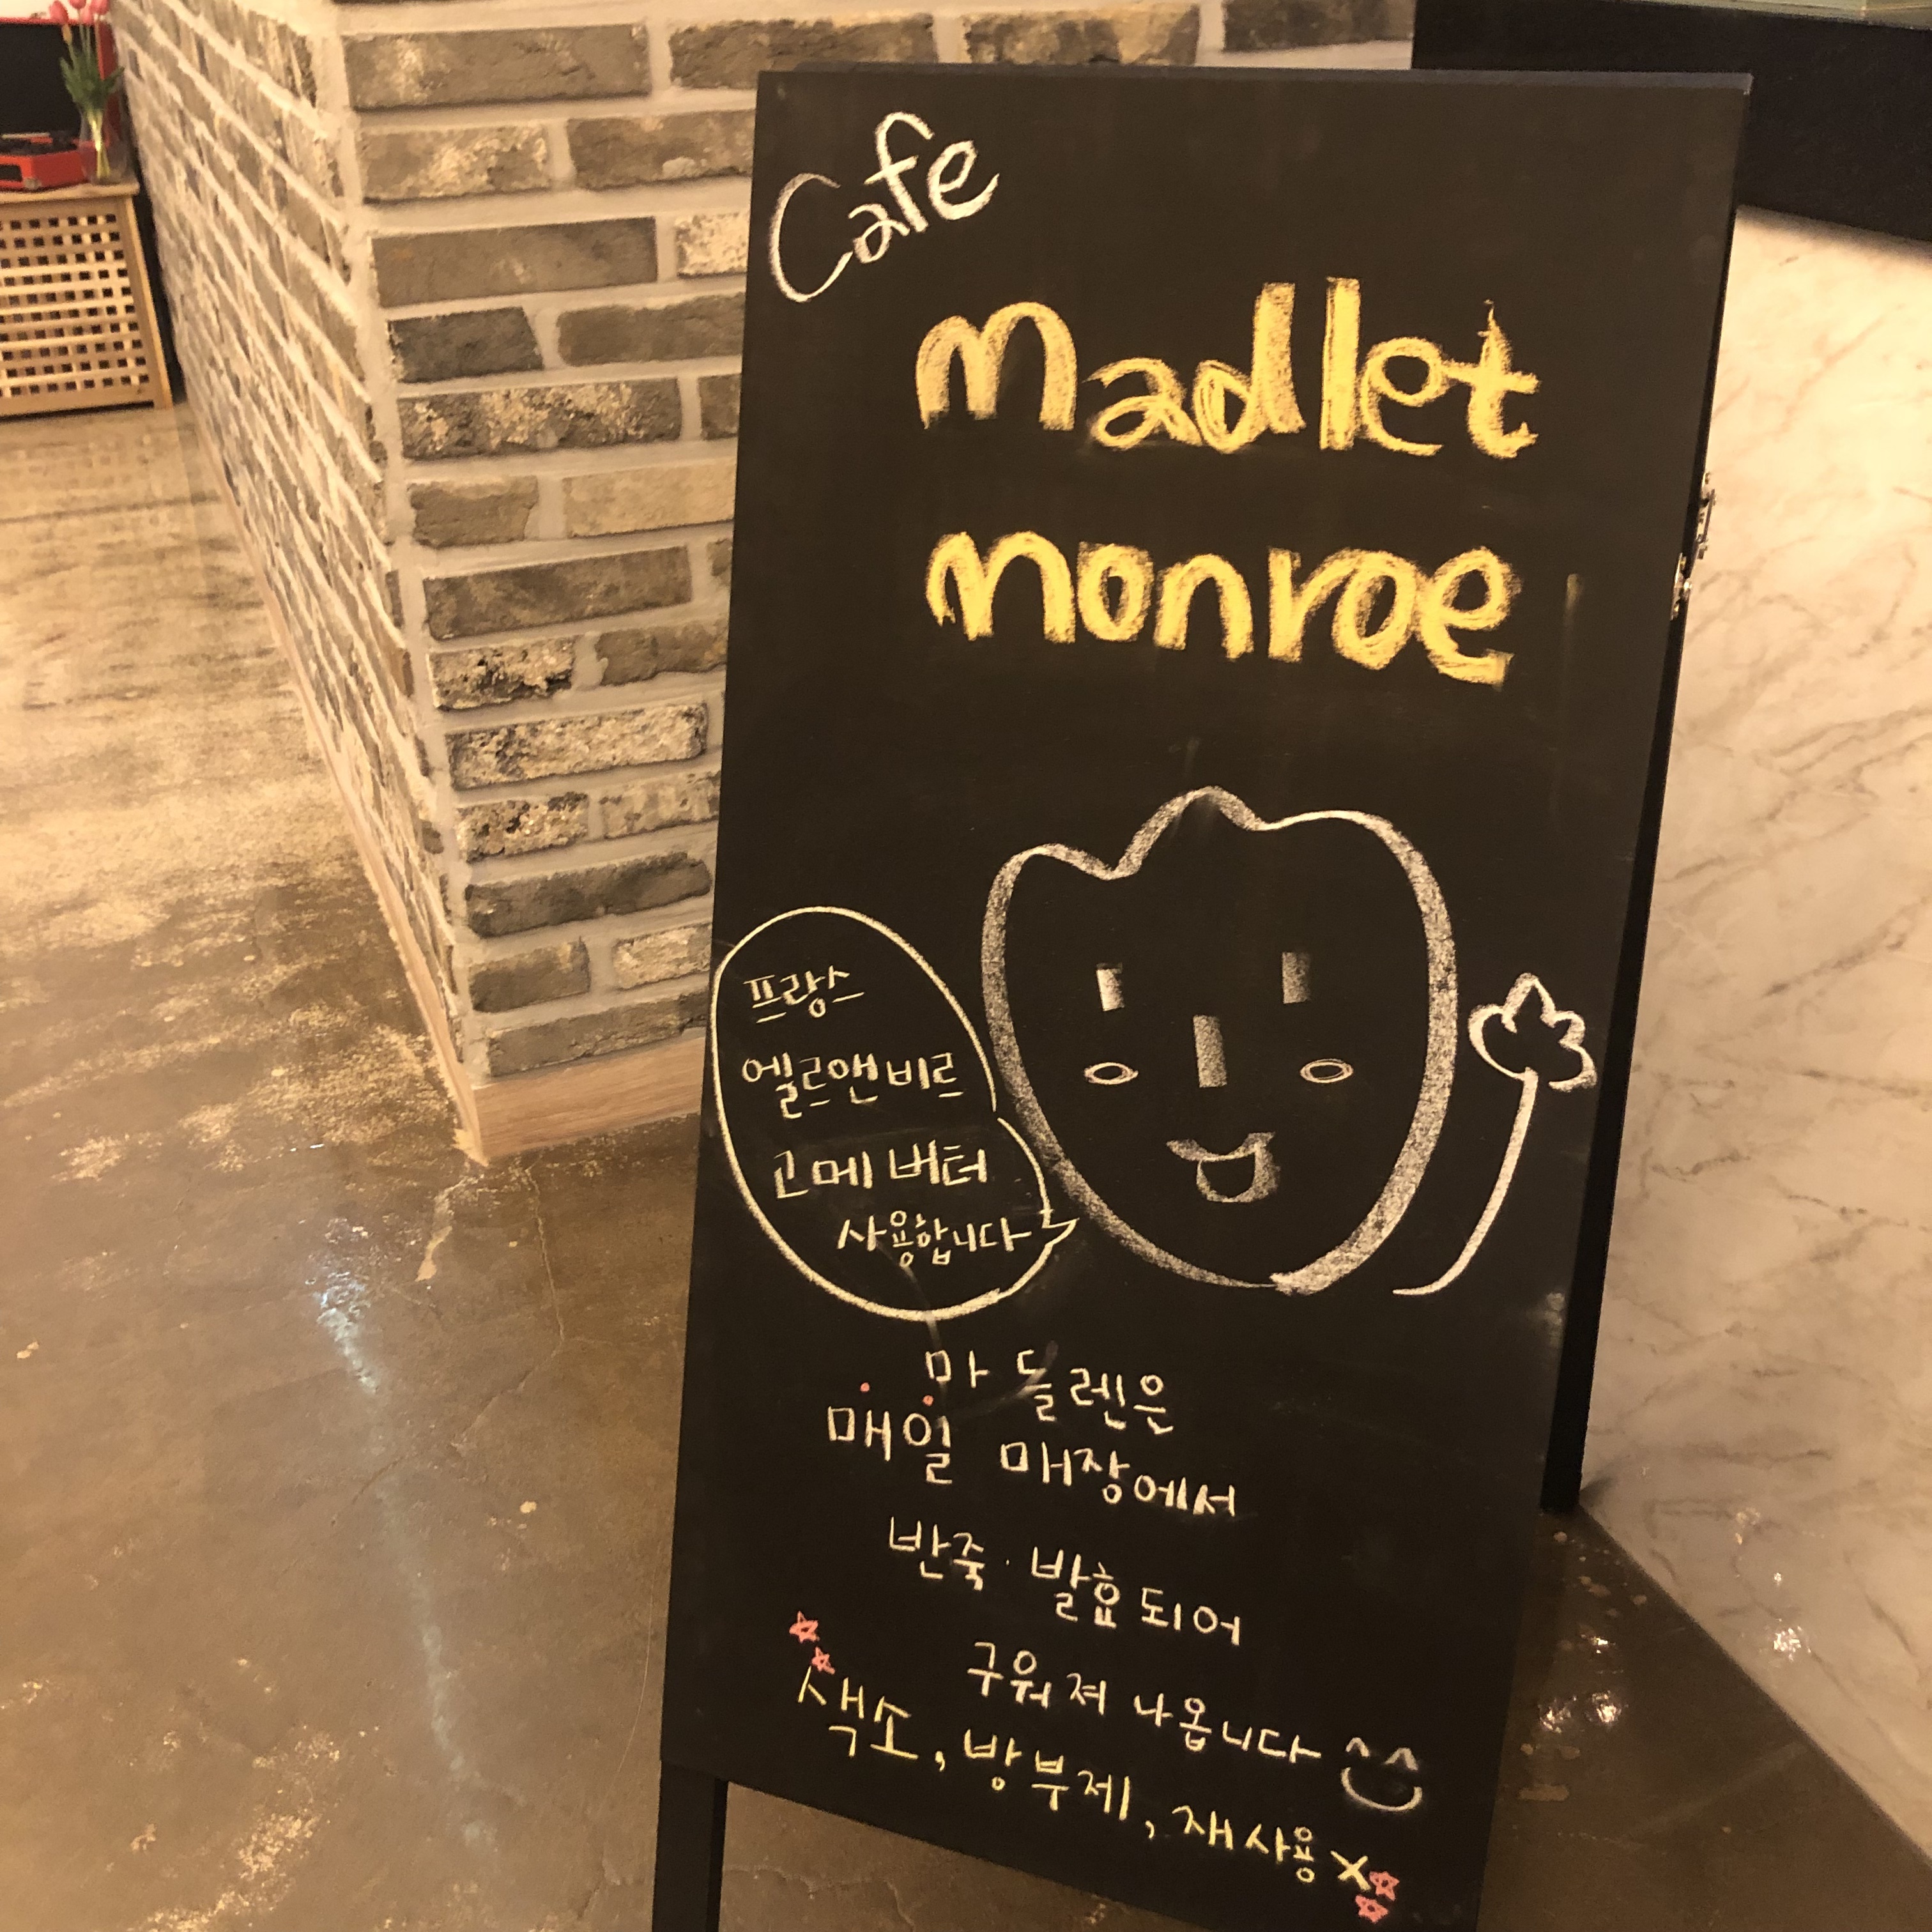 Cafe
madlet
monroe
프랑스
엘르앤비르
고메 버터
사용합니다
마들렌은
매일 매장에서
반죽·발효되어
구워져 나옵니다
색소, 방부제, 재사용 X